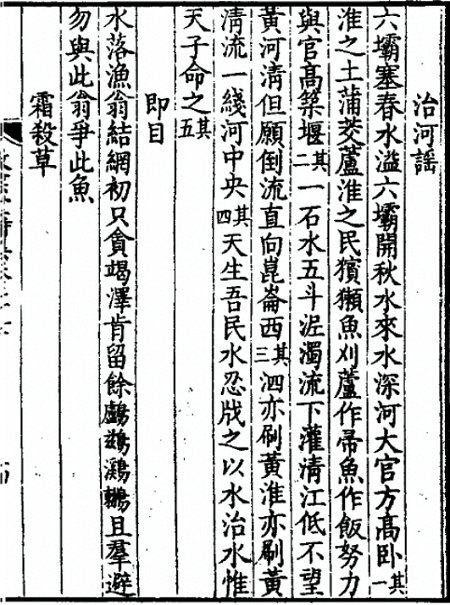 治河謡
六壩塞春水溢六壩開秋水來水深河大官方髙卧其一
淮之土蒲茭蘆淮之民獱獺魚刈蘆作帚魚作飯努力
與官髙築堰其二一石水五斗泥濁流下灌清江低不望
黄河清但願倒流直向崑崙西其三泗亦刷黄淮亦刷黄
清流一綫河中央其四天生吾民水忍戕之以水治水惟
天子命之其五
即目
水落漁翁結網初只貪竭澤肯留餘鸕鷀鸂鶒且羣避
勿與此翁爭此魚
霜殺草